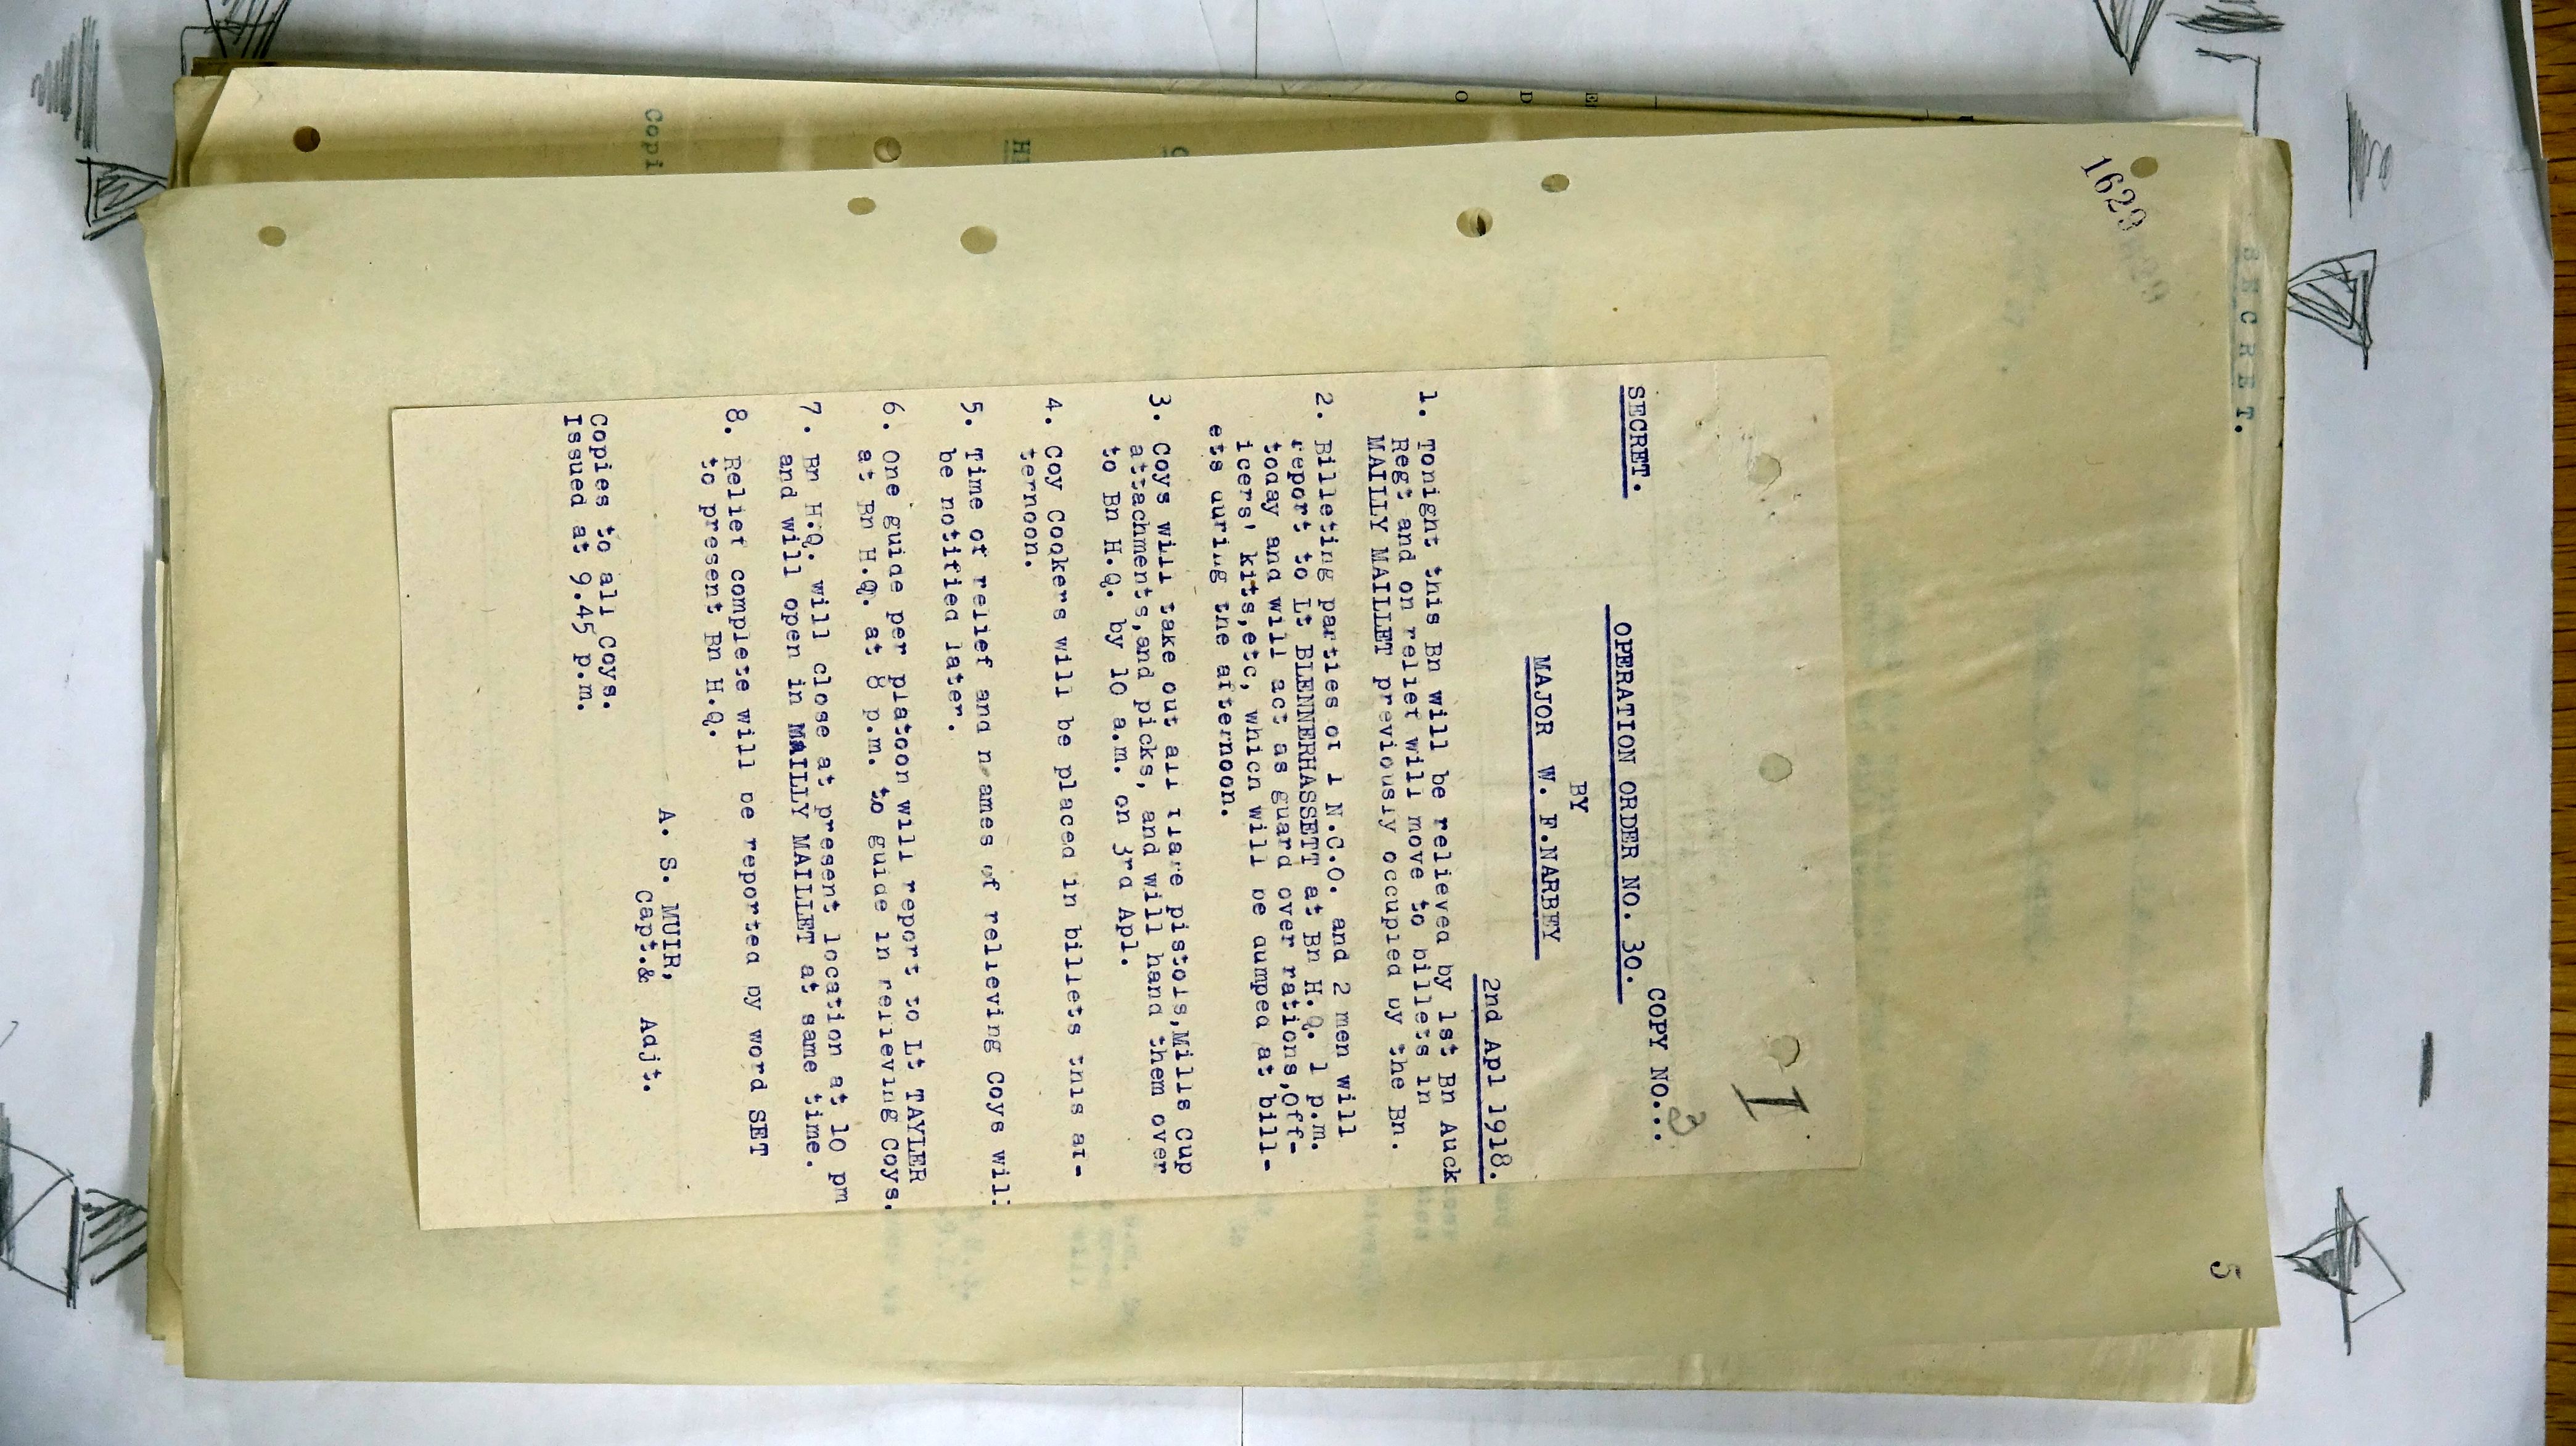 1629
SECRET.
5
I
3
SECRET.
COPY NO...
OPERATION ORDER NO. 30.
BY
MAJOR W. F.NARBEY
2nd Apl 1918.
1. Tonight this Bn will be relieved by 1st Bn Auck
Regt and on relief will move to billets in
MAILLY MAILLET previously occupied by the Bn.
2. Billeting parties of 1 N.C.O. and 2 men will
report to Lt BLENNERHASSETT at Bn H.Q. 1 p.m.
today and will act as guard over rations,Off-
icers' kits,etc, which will be dumped at bill-
ets during the afternoon.
3. Coys will take out all flare pistols,Mills Cup
attachments,and picks, and will hand them over
to Bn H.Q. by 10 a.m. on 3rd Apl.
4. Coy Cookers will be placed in billets this af-
ternoon.
5. Time of relief and names of relieving Coys will
be notified later.
6. One guide per platoon will report to Lt TAYLER
at Bn H.Q. at 8 p.m. to guide in relieving Coys.
7. Bn H.Q. will close at present location at 10 pm
and will open in MAILLY MAILLET at same time.
8. Relief complete will be reported by word SET
to present Bn H.Q.
A. S. MUIR,
Capt.& Adjt.
Copies to all Coys.
Issued at 9.45 p.m.
Copi